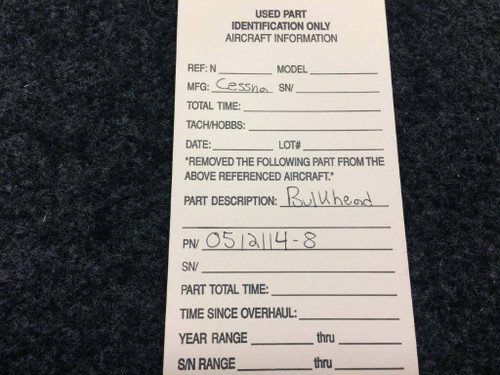 USED PART
IDENTIFICATION ONLY
AIRCRAFT INFORMATION
REF: N ________ MODEL ________
MFG: Cessna SN/ ________
TOTAL TIME: ________
TACH/HOBBS: ________
DATE: ________ LOT# ________
"REMOVED THE FOLLOWING PART FROM THE
ABOVE REFERENCED AIRCRAFT."
PART DESCRIPTION: Bulkhead
PN/ 0512114-8
SN/ ________
PART TOTAL TIME: ________
TIME SINCE OVERHAUL: ________
YEAR RANGE ________ thru ________
S/N RANGE ________ thru ________